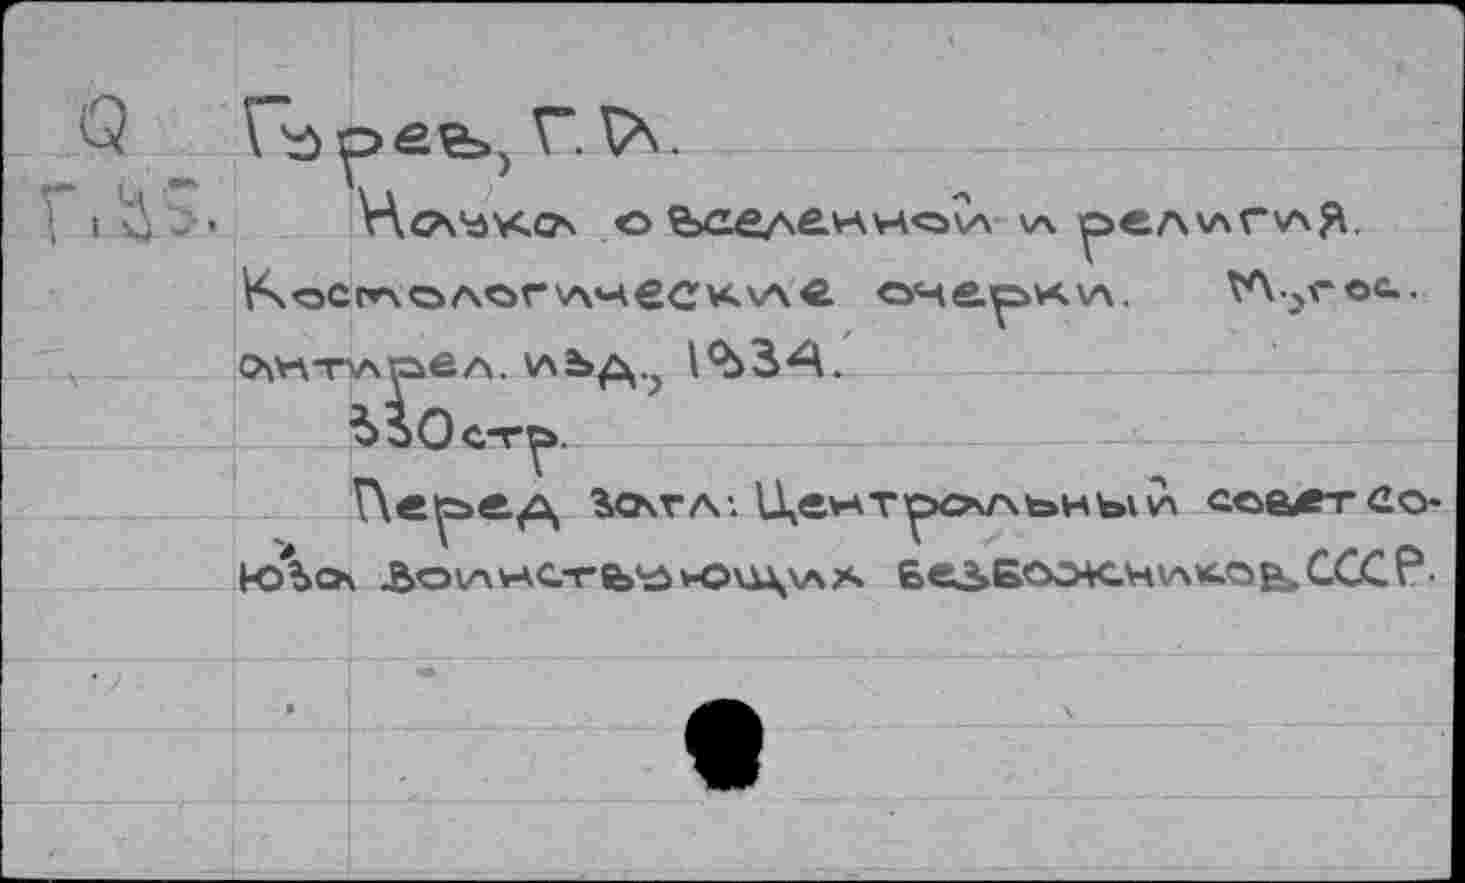 Q Гурев, Г.А.
Г.95. Наука о вселенной и религия.
Космологические очерки. М., гос.
антирел. изд., 1934.
330 стр.
Перед загл.: Центральный совет Со-
юза Воинствующих Безбожников СССР.